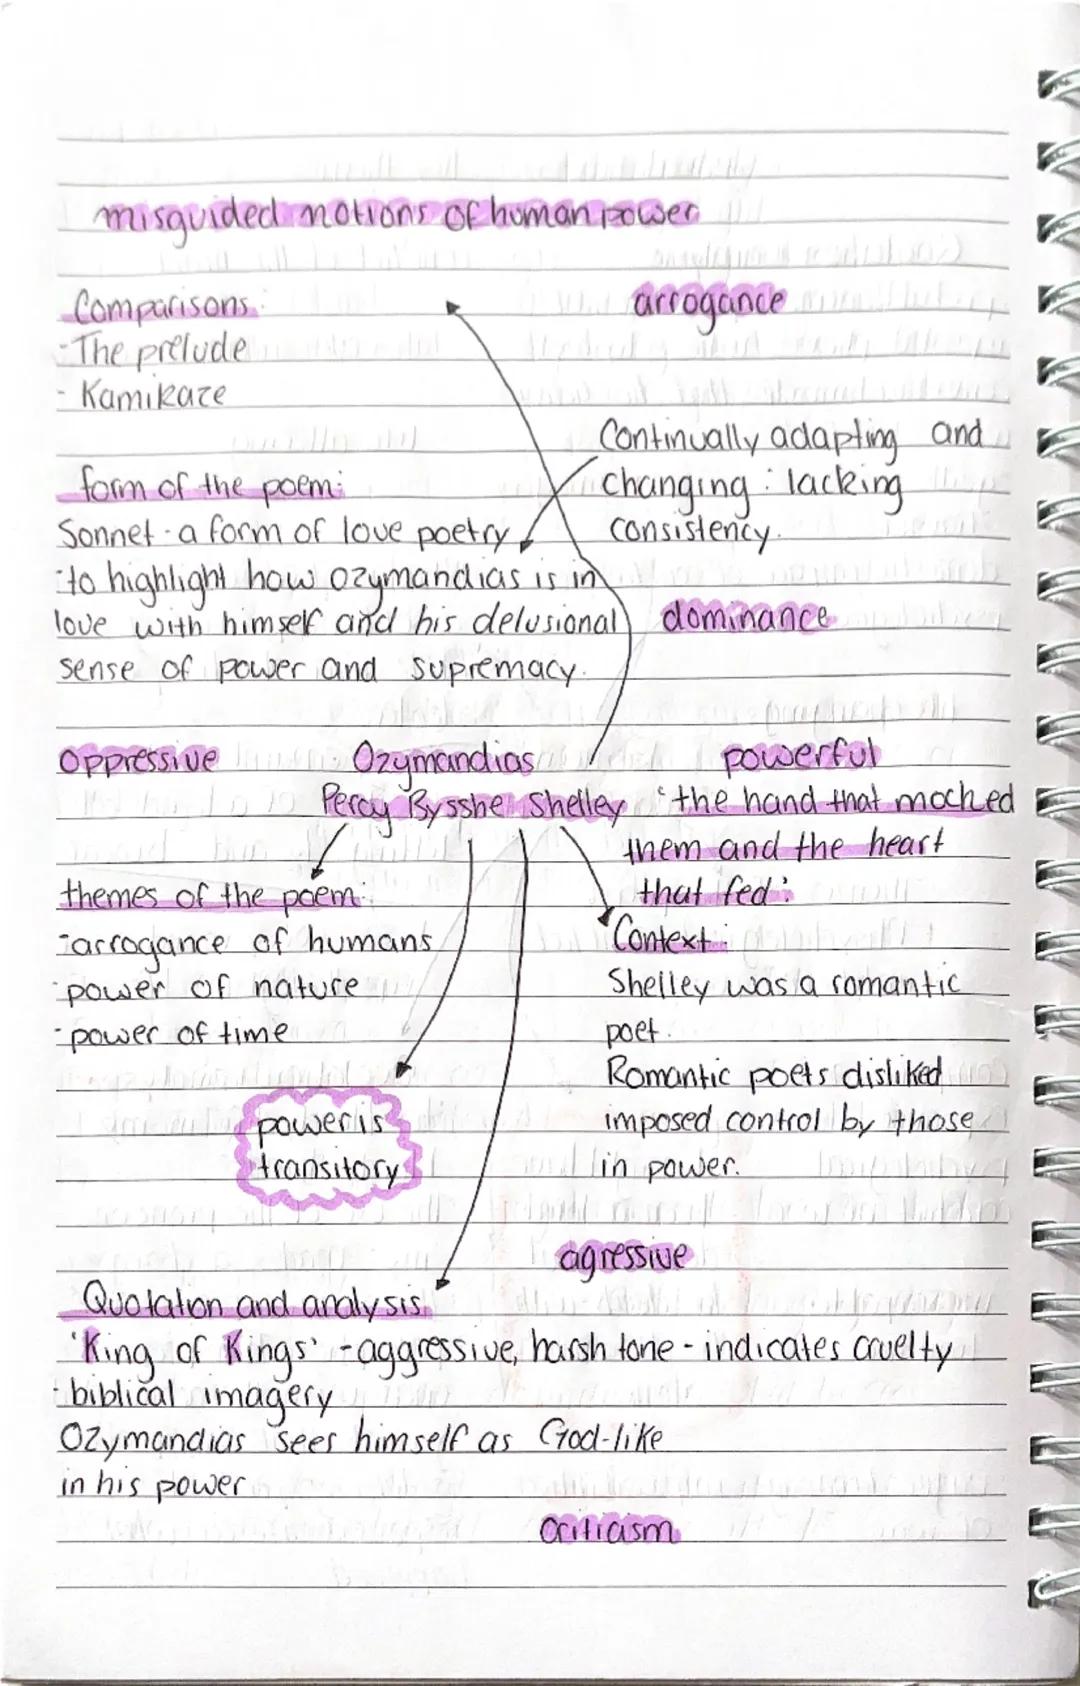 misguided notions of human power
Comparisons:
arrogance
-The prelude
- Kamikaze
Continually adapting and
changing : lacking
consistency.
form of the poem:
Sonnet - a form of love poetry
-to highlight how ozymandias is in
love with himself and his delusional
sense of power and supremacy.
dominance
oppressive
Ozymandias
powerful
Percy Bysshe Shelley
'the hand that mocked
them and the heart
that fed:
themes of the poem:
-arrogance of humans
-power of nature
-power of time
Context:
Shelley was a romantic
poet.
Romantic poets disliked
imposed control by those
in power.
power is
transitory
agressive
Quotation and analysis.
'King of Kings' -aggressive, harsh tone - indicates cruelty
-biblical imagery
Ozymandias sees himself as God-like
in his power
criticism